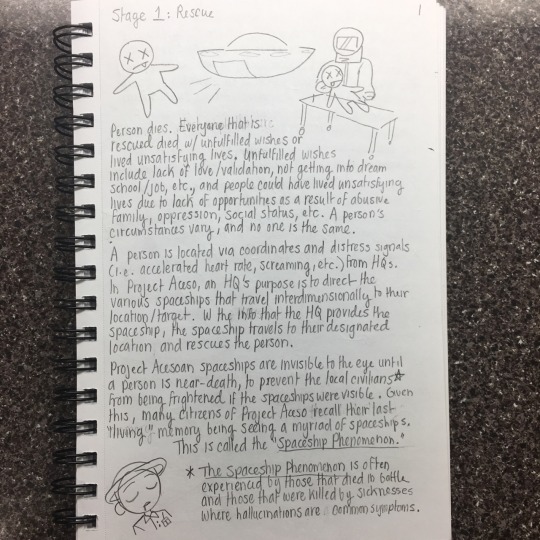 Stage 1: Rescue
1
Person dies. Everyone that is
rescued died w/ unfulfilled wishes or
lived unsatisfying lives. Unfulfilled wishes
include lack of love/validation, not getting into dream
school/job, etc., and people could have lived unsatisfying
lives due to lack of opportunities as a result of abusive
family, oppression, social status, etc. A person's
circumstances vary, and no one is the same.
A person is located via coordinates and distress signals
(i.e. accelerated heart rate, screaming, etc.) from HQs.
In Project Aceso, an HQ's purpose is to direct the
various spaceships that travel interdimensionally to their
location/target. W/ the info that the HQ provides the
spaceship, the spaceship travels to their designated
location and rescues the person.
Project Acesoan spaceships are invisible to the eye until
a person is near-death, to prevent the local civilians*
from being frightened if the spaceships were visible. Given
this, many citizens of Project Aceso recall their last
"living" memory being seeing a myriad of spaceships.
This is called the "Spaceship Phenomenon."
* The Spaceship Phenomenon is often
experienced by those that died in battle
and those that were killed by sicknesses
where hallucinations are common symptoms.